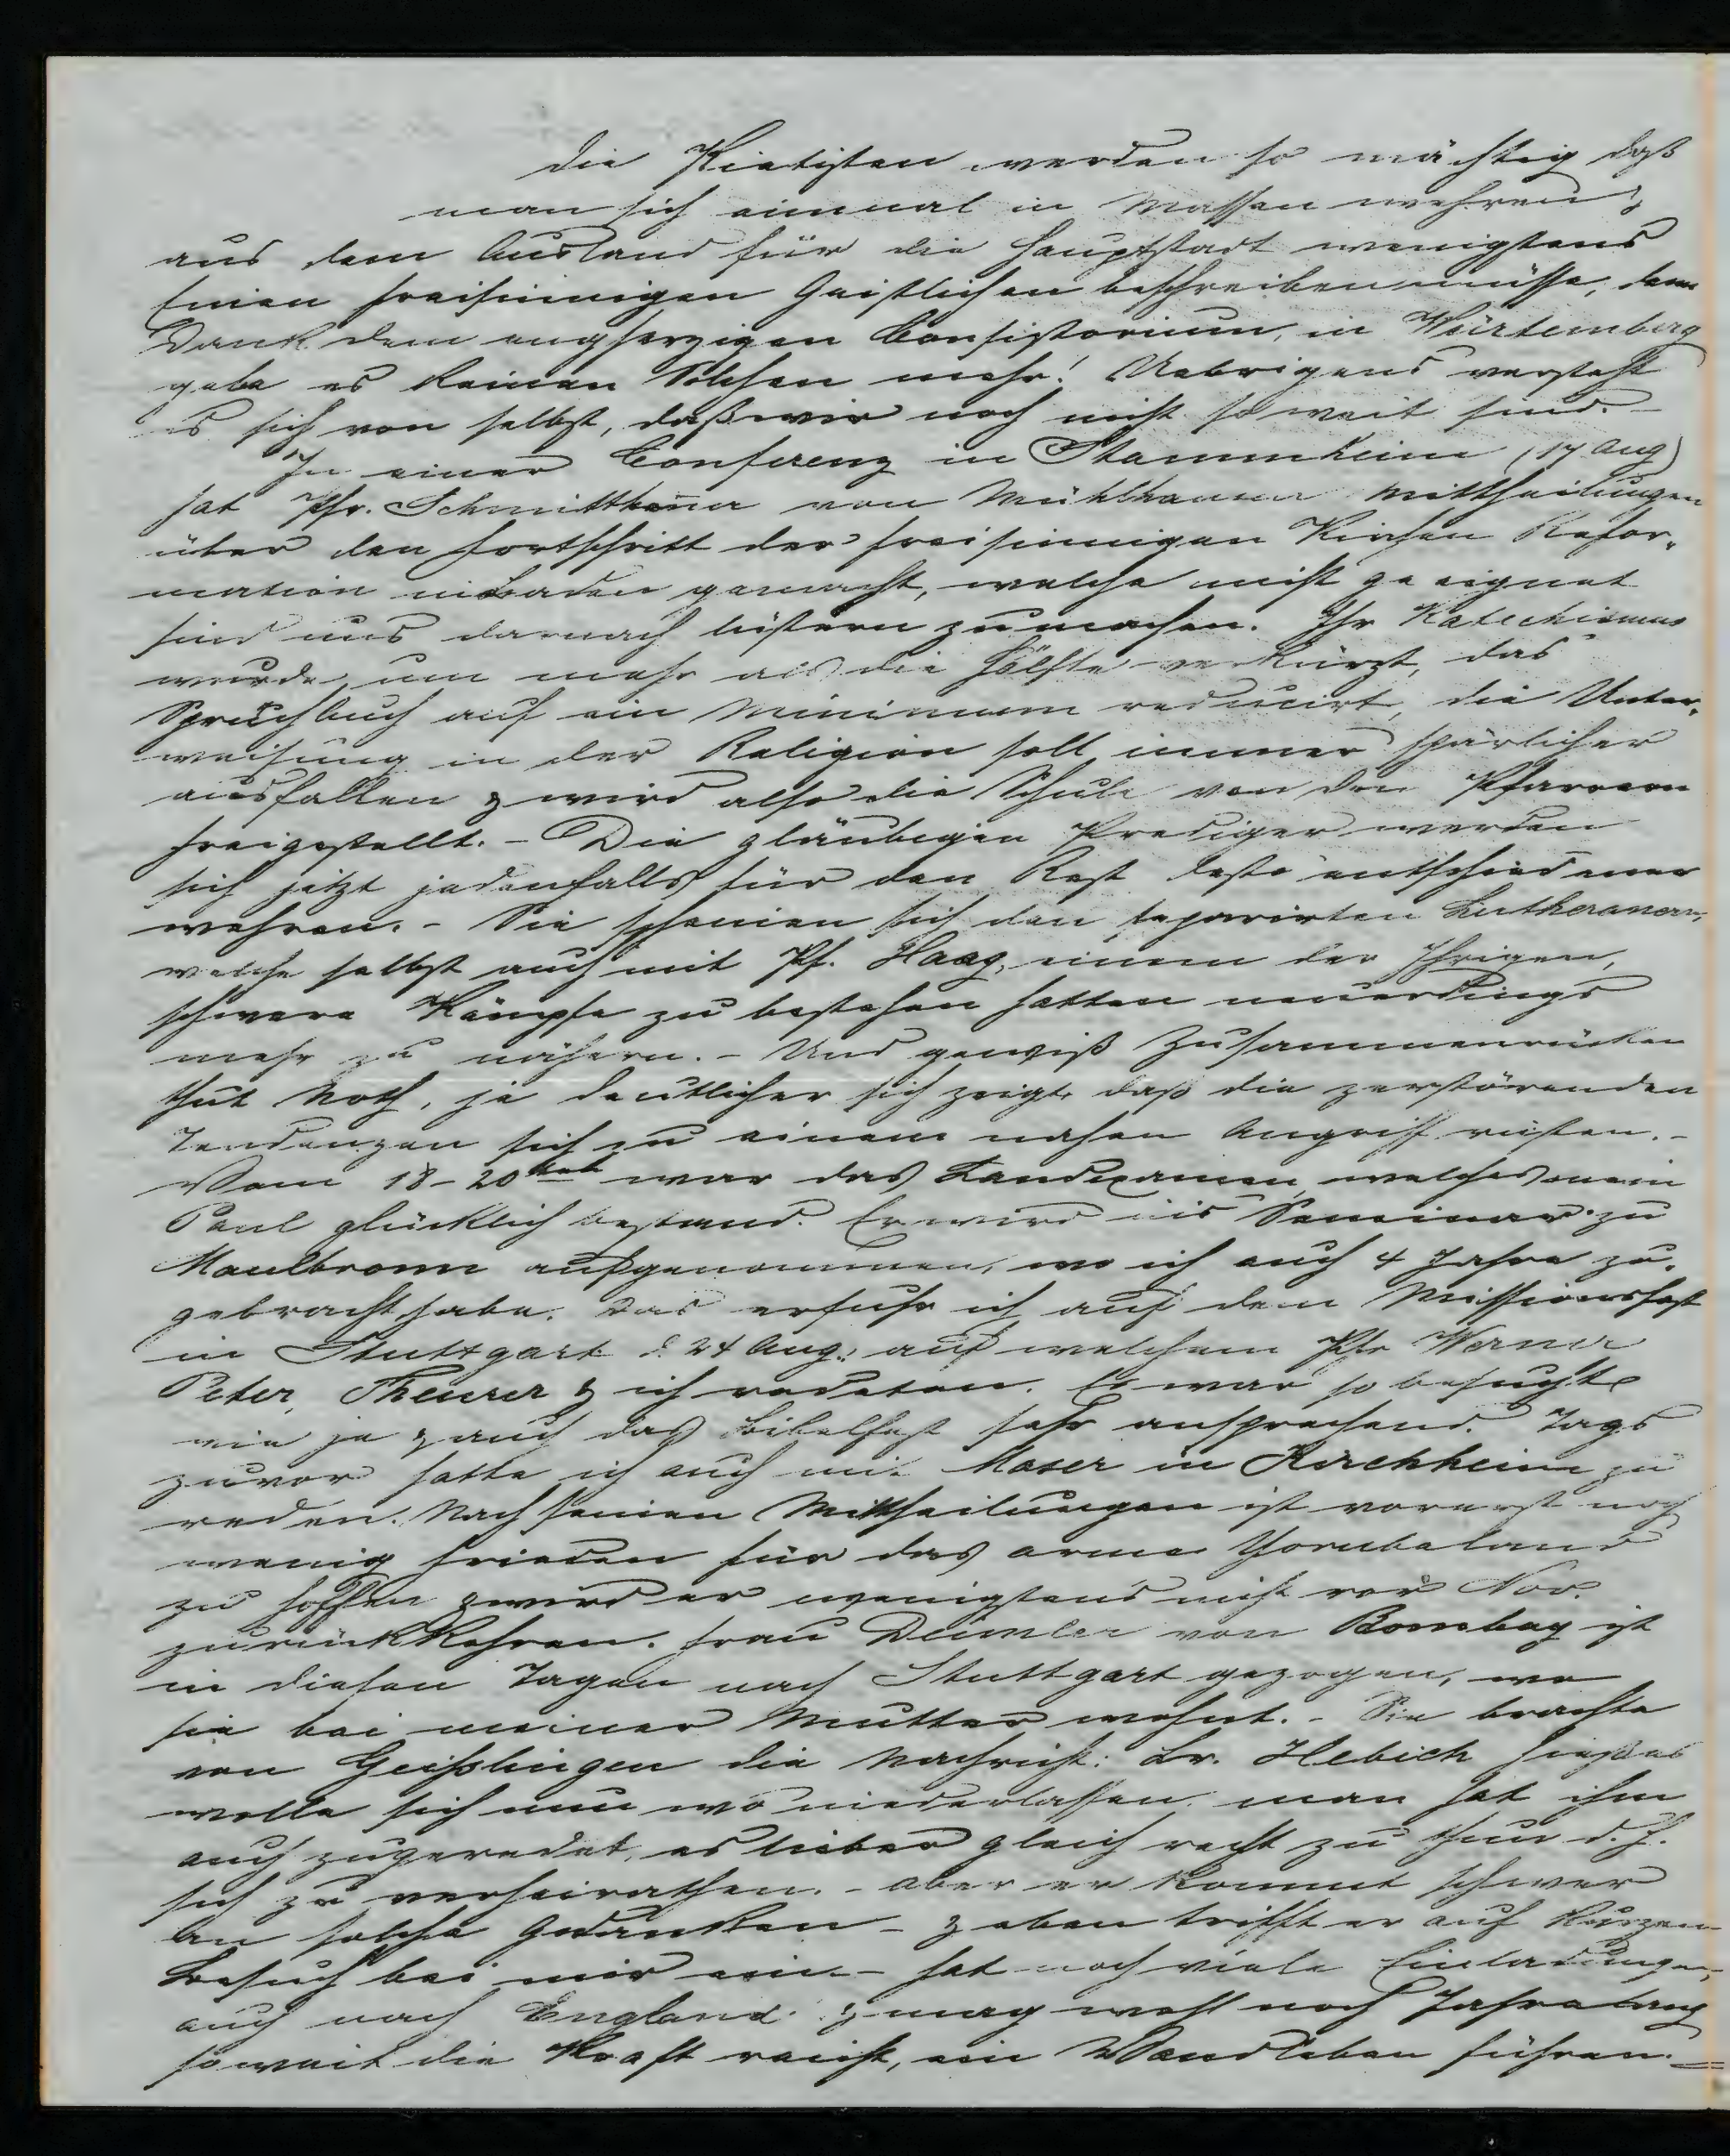 die Pietisten werden so mächtig daß
man sich einmal in Massen wehren &
aus dem Ausland für die Hauptstadt wenigstens
Einen freisinnigen Geistlichen beschreiben müsse, denn
Dank dem engherzigen Consistorium, in Würtemberg
gebe es keinen Solchen mehr! Uebrigens versteht
es sich von selbst, daß wir noch nicht so weit sind. -
In einer Conferenz in Stammheim (17 Aug)
hat Pfr. Schmitthenner von Mühlhausen Mittheilungen
über den Fortschritt der freisinnigen Kirchen Refor-
mation in Baden gemacht, welche nicht geeignet
sind uns darnach lüstern zu machen. Ihr Katechismus
wurde um mehr als die Hälfte verkürzt, das
Spruchbuch auf ein Minimum reducirt, die Unter-
weisung in der Religion soll immer spärlicher
ausfallen & wird also die Schule von den Pfarrern
freigestellt. - Die gläubigen Prediger werden
sich jetzt jedenfalls für den Rest desto entschiedener
wehren. - Sie scheinen sich den separirten Lutheranern,
welche selbst auch mit Pf. Haag, einem der Ihrigen,
schwere Kämpfe zu bestehen hatten neuerdings
mehr zu nähern. - Und gewiß Zusammenrücken
thut Noth, je deutlicher sich zeigt, daß die zerstörenden
Tendenzen sich zu einem nahen Angriff rüsten. -
Vom 18-20ten war das Landexamen, welches mein
Paul glücklich bestand. Er wird ins Seminar zu
Maulbronn aufgenommen, wo ich auch 4 Jahre zu-
gebracht habe. Das erfuhr ich auf dem Missionsfest
in Stuttgart d. 24 Aug. auf welchem Pfr Werner
Peter, Theurer & ich redeten. Es war so besucht
wie je & auch das Bibelfest sehr ansprechend. Tags
zuvor hatte ich auch mit Maser in Kirchheim zu
reden. Nach seinen Mittheilungen ist vorerst noch
wenig Frieden für das arme Yorubaland
zu hoffen & wird er wenigstens nicht vor Nov.
zurückkehren. Frau Deimler von Bombay ist
in diesen Tagen nach Stuttgart gezogen, wo
sie bei meiner Mutter wohnt. - Sie brachte
von Geißlingen die Nachricht: Br. Hebich hieß es
wolle sich nun wo niederlassen, man hat ihm
auch zugeredet, es lieber gleich recht zu thun d. h.
sich zu verheirathen. - Aber er kommt schwer
an solche Gedanken - & eben trifft er auf kurzem
Besuch bei mir ein - hat noch viele Einladungen,
auch nach England & mag wohl noch Jahre lang
so weit die Kraft reicht, ein Wanderleben führen. =